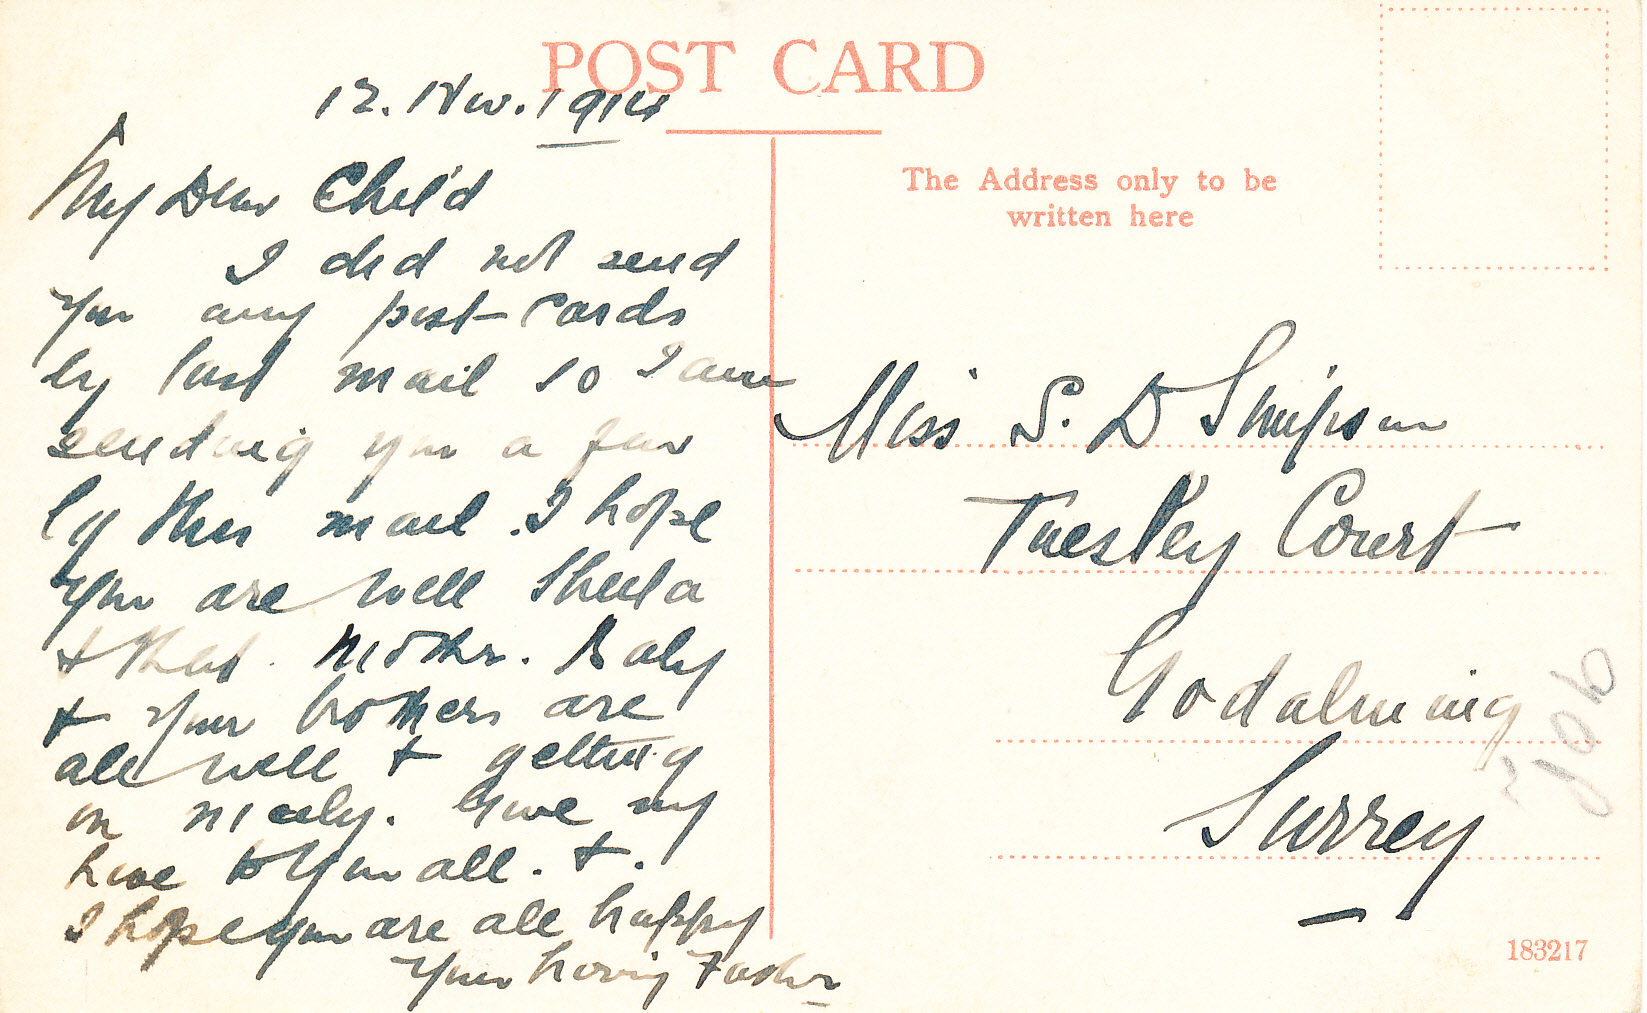 POST CARD
12. Nov. 1914
My Dear Child
I did not send
you any post-cards
by last mail so I am
sending you a few
by this mail. I hope
you are well Sheila
& that Mother. Baby
& your brothers are
all well & getting
on nicely. Give my
love to you all. &.
I hope you are all happy
Your loving Father
The Address only to be
written here
Miss S. D Simpson
Tuesley Court
Godalming
Surrey
183217